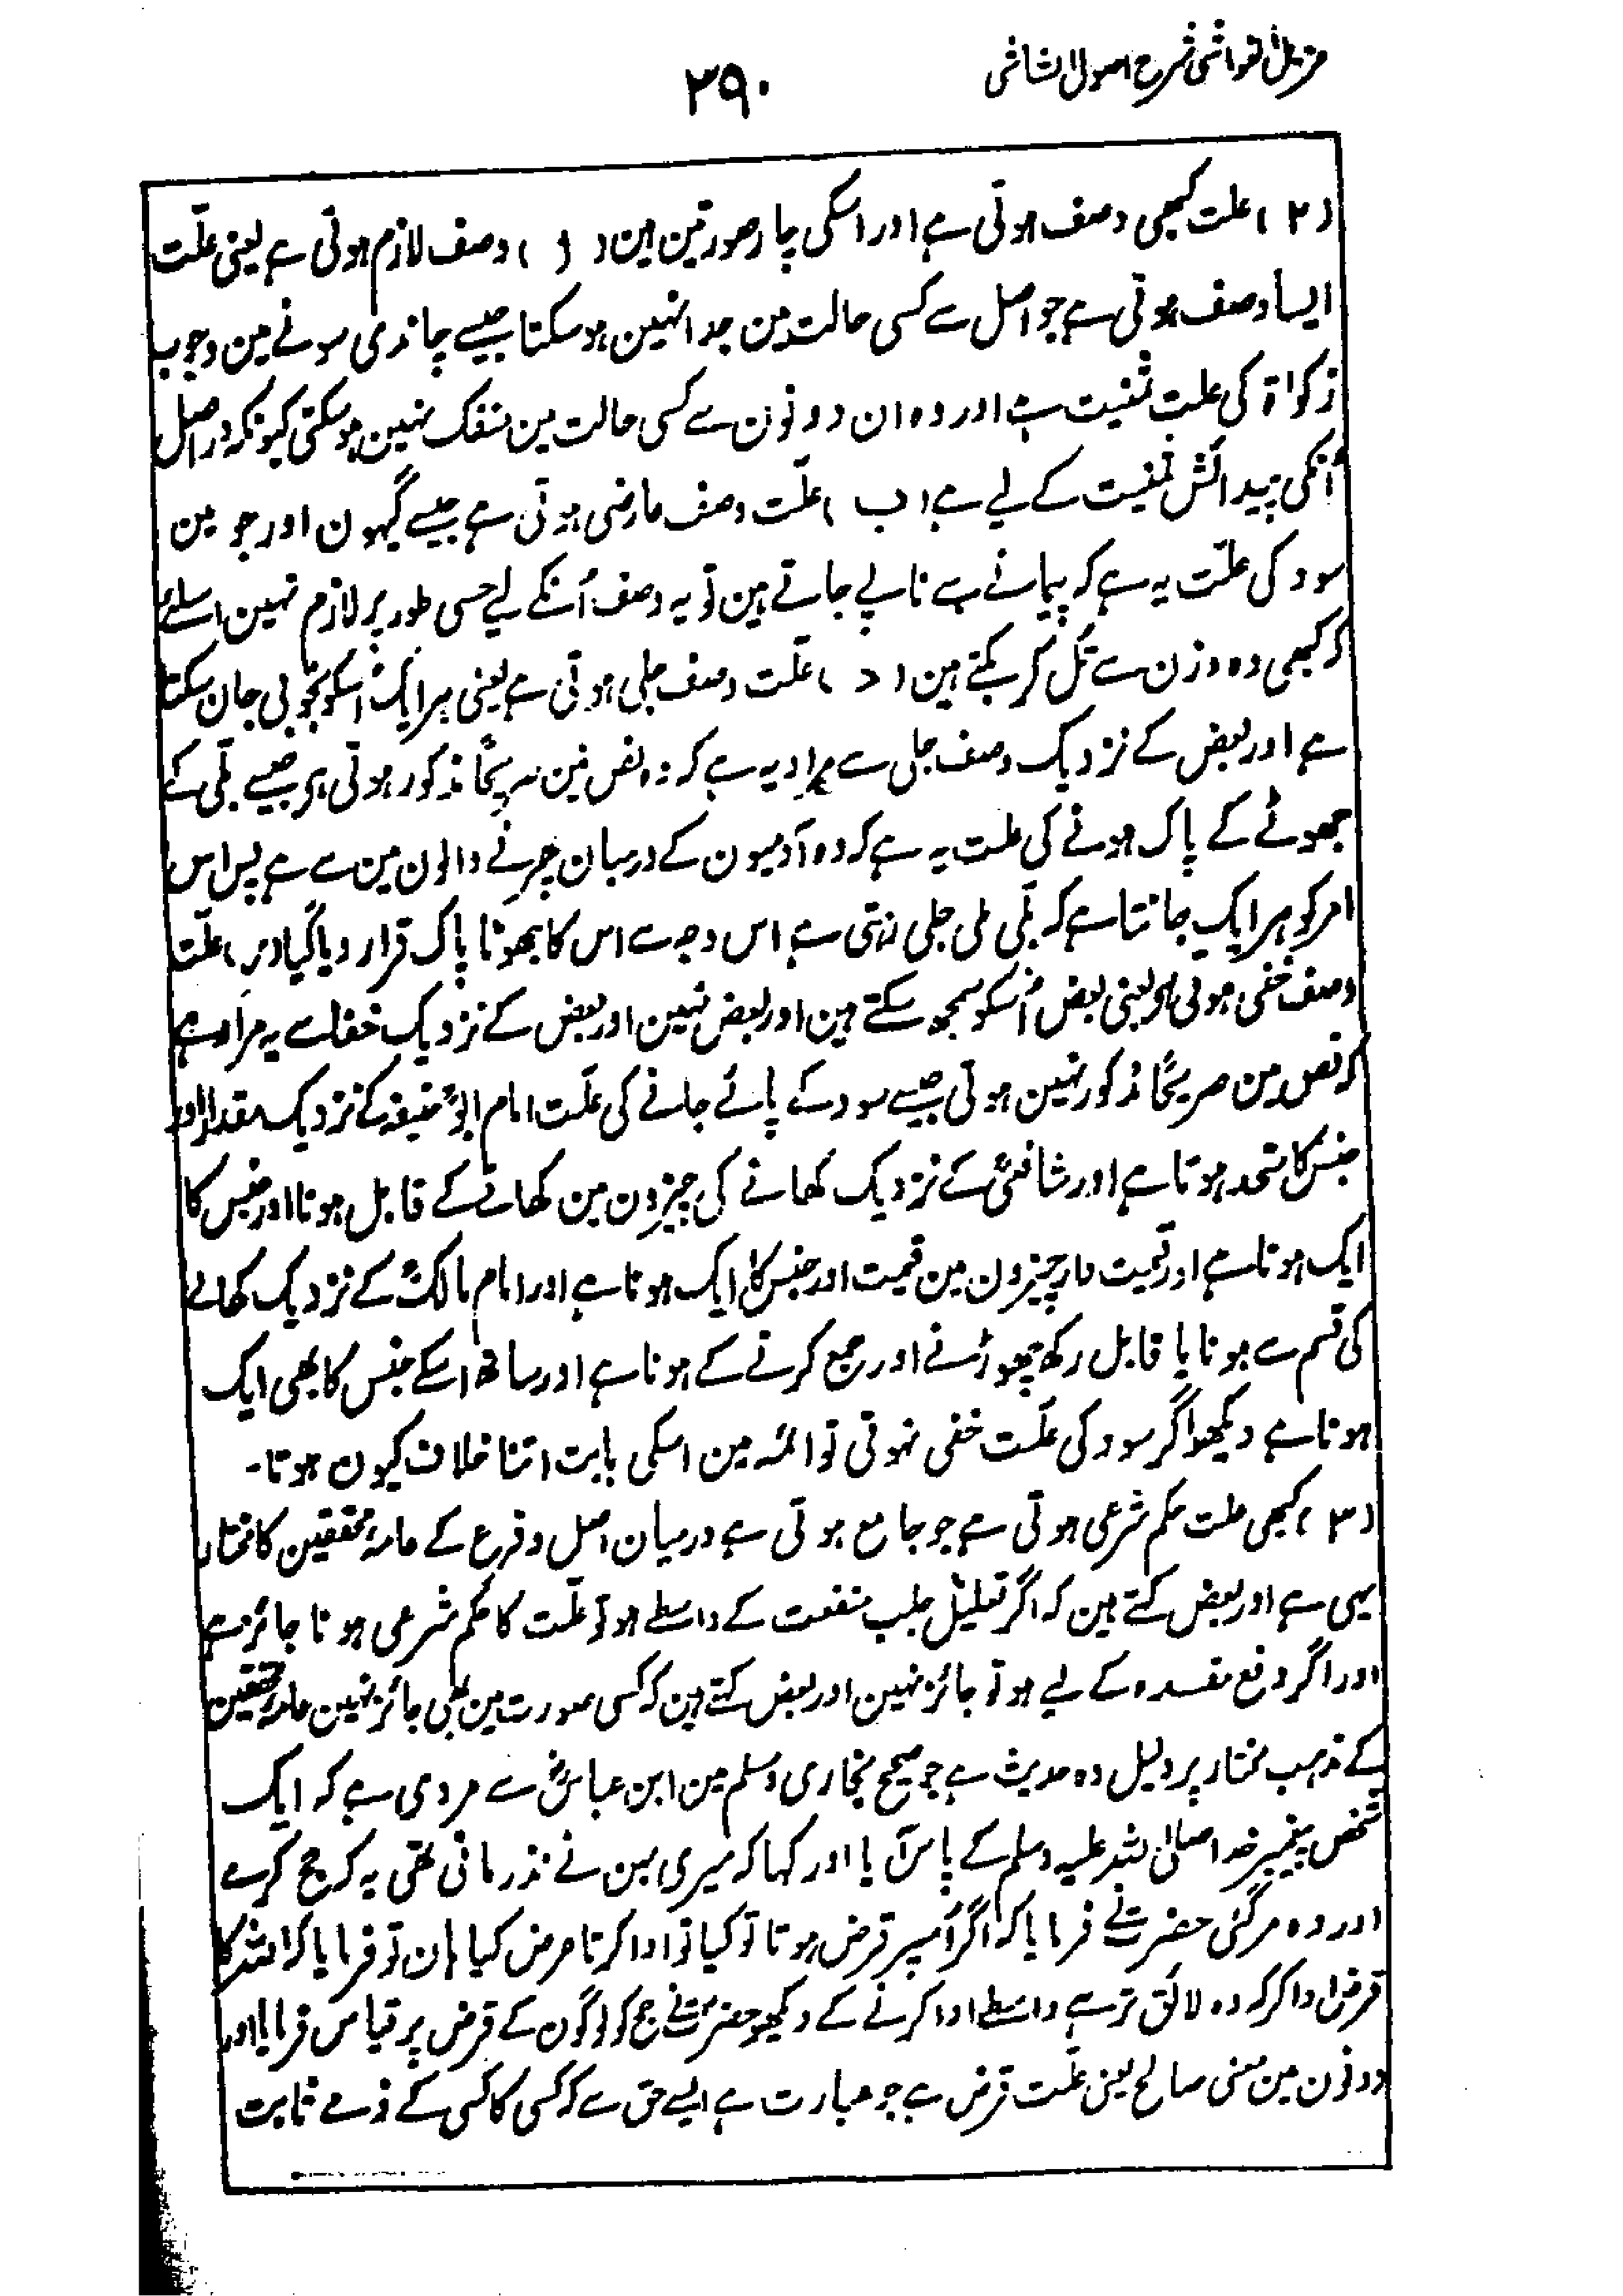 مزیل الغواشی شرح اصول الشاشی
۳۹۰
(۲) علت کبھی وصف ہوتی ہے اور اسکی چار صورتین ہین ( ا ) وصف لازم ہوتی ہے یعنی علّت
ایسا وصف ہوتی ہے جو اصل سے کسی حالت مین جدا نہین ہو سکتا جیسے چاندی سونے مین وجوب
زکواۃ کی علت ثمنیت ہے اور وہ ان دونون سے کسی حالت مین منفک نہین ہو سکتی کیونکہ دراصل
اُنکی پیدائش ثمنیت کے لیے ہے ( ب ) علّت وصف عارضی ہوتی ہے جیسے گیہون اور جو مین
سود کی علّت یہ ہے کہ پیمانے سے ناپے جاتے ہین تو یہ وصف اُنکے لیے حسی طور پر لازم نہین اسلئے
کہ کبھی وہ وزن سے تل کر بکتے ہین ( د ) علّت وصف جلی ہوتی ہے یعنی ہر ایک اُسکو بخوبی جان سکتا
ہے اور بعض کے نزدیک وصف جلی سے مراد یہ ہے کہ وہ نص مین صریحًا مذکور ہوتی ہو جیسے بلّی کے
جھوٹے کے پاک ہونے کی علت یہ ہے کہ وہ آدمیون کے درمیان پھرنے والون مین سے ہے پس اس
امر کو ہر ایک جانتا ہے کہ بلّی ملی جلی رہتی ہے اس وجہ سے اس کا جھوٹا پاک قرار دیا گیا علّت
وصف خفی ہوتی ہے یعنی بعض اُسکو سمجھ سکتے ہین اور بعض نہین اور بعض کے نزدیک خفا سے یہ مراد ہے
کہ نص مین صریحًا مذکور نہین ہوتی جیسے سود کے پائے جانے کی علّت امام ابو حنیفہؒ کے نزدیک مقدار اور
جنس کا متحد ہوتا ہے اور شافعیؒ کے نزدیک کھانے کی چیزون مین کھانے کے قابل ہونا اور جنس کا
ایک ہوتا ہے اور قیمت دار چیزون مین قیمت اور جنس کا ایک ہونا ہے اور امام مالکؒ کے نزدیک کھانے
کی قسم سے ہونا یا قابل رکھ چھوڑنے اور جمع کرنے کے ہونا ہے اور ساتھ اسکے جنس کا بھی ایک
ہوتا ہے دیکھو اگر سود کی علّت خفی نہوتی تو ائمہ مین اسکی بابت اتنا خلاف کیون ہوتا۔
(۳) کبھی علت حکم شرعی ہوتی ہے جو جامع ہوتی ہے درمیان اصل و فرع کے عامۂ محققین کا مختار
یہی ہے اور بعض کہتے ہین کہ اگر تعلیل جلب منفعت کے واسطے ہو تو علّت کا حکم شرعی ہونا جائز ہے
اور اگر دفع مفسدہ کے لیے ہو تو جائز نہین اور بعض کہتے ہین کہ کسی صورت مین بھی جائز نہین عامۂ محققین
کے مذہب مختار پر دلیل وہ حدیث ہے جو صحیح بخاری و مسلم مین ابن عباسؓ سے مروی ہے کہ ایک
شخص پیغمبر خدا صلی اللہ علیہ وسلم کے پاس آیا اور کہا کہ میری بہن نے نذر مانی تھی یہ کہ حج کرے
اور وہ مر گئی حضرت نے فرمایا کہ اگر اُسپر قرض ہوتا تو کیا تو ادا کرتا عرض کیا ہان تو فرمایا کہ اللہ کا
قرض ادا کر کہ وہ لائق تر ہے واسطے ادا کرنے کے دیکھو حضرت نے حج کو لوگون کے قرض پر قیاس فرمایا اور
دونون مین معنی صالح یعنی علّت قرض ہے جو عبارت ہے ایسے حق سے کہ کسی کا کسی کے ذمے ثابت